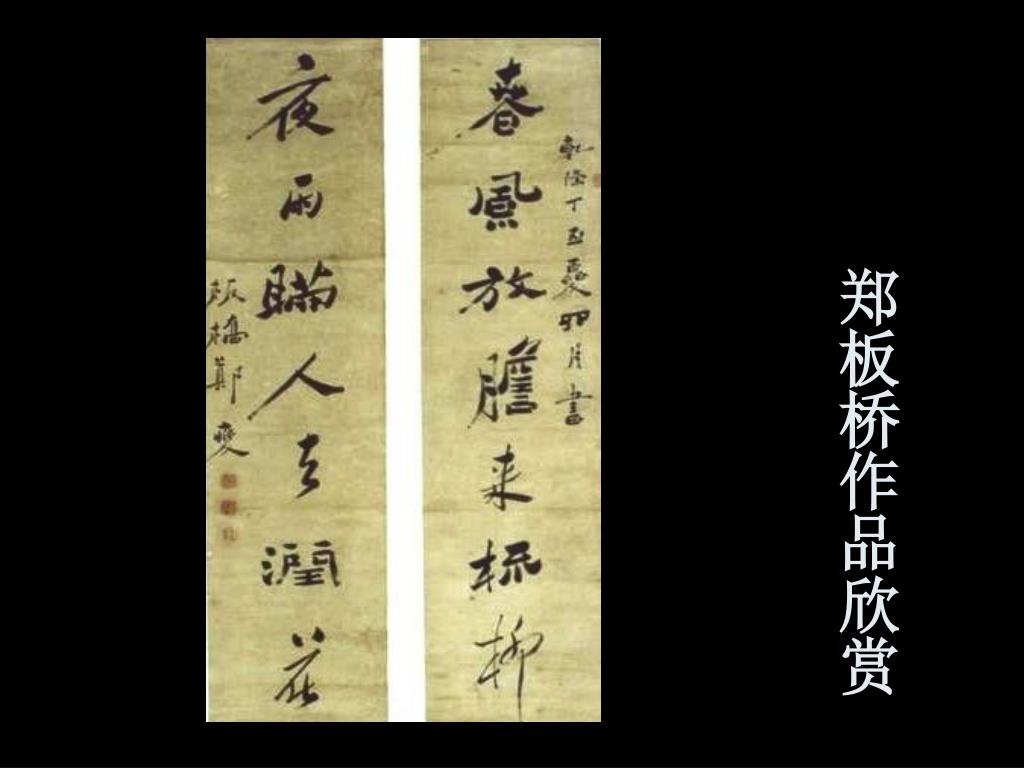 郑板桥作品欣赏
乾隆丁丑夏卯月書
春風放膽来梳柳
夜雨瞞人去潤花
板橋鄭燮